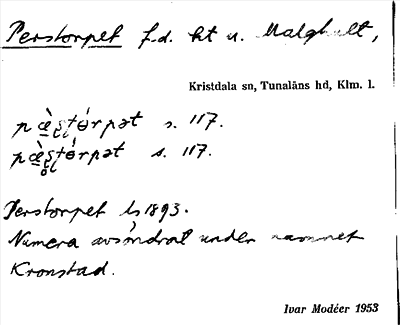 Perstorpet f.d. ht u. Malghult,
Kristdala sn, Tunaläns hd, Klm. l.
s. 117.
s. 117.
Perstorpet ls 1893.
Numera avsöndrat under namnet
Kronstad.
Ivar Modéer 1953